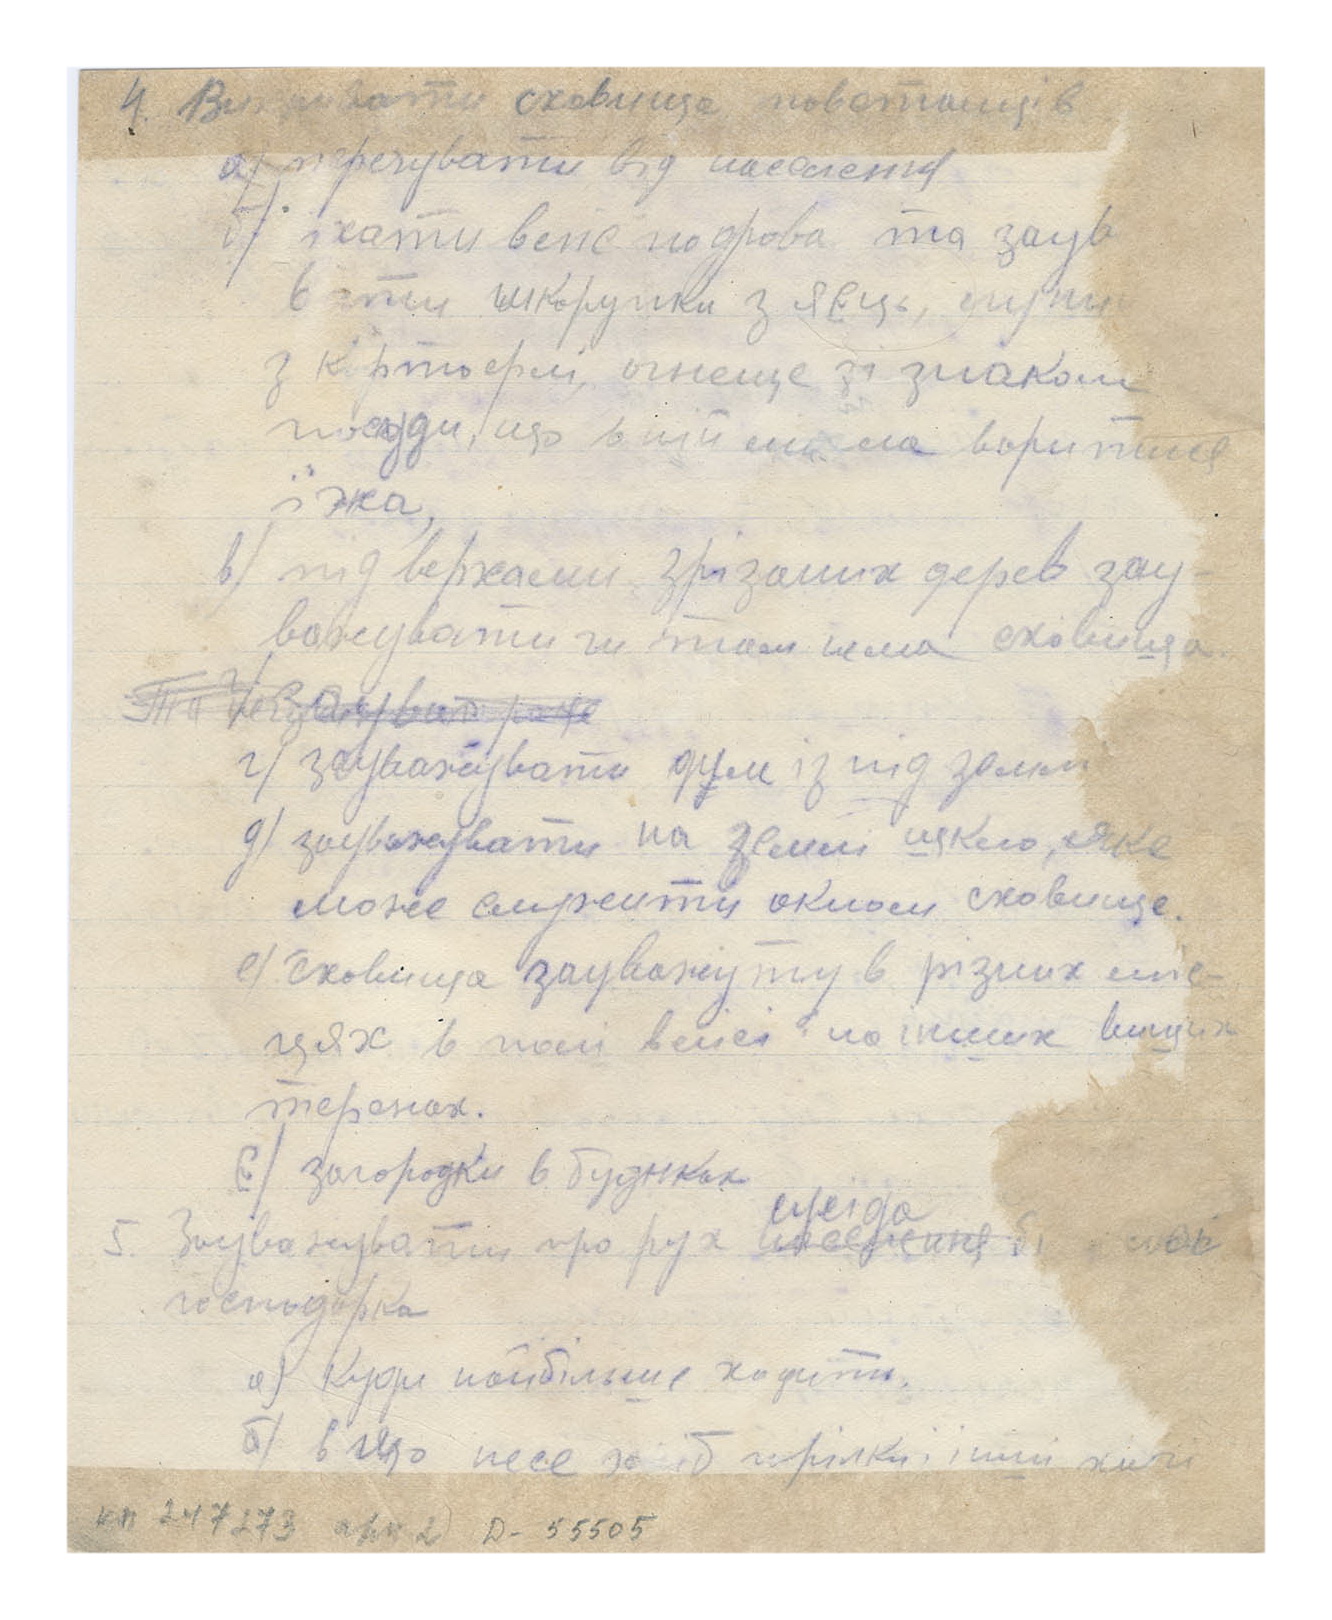 4. сховища повстанців
а) перечувати від населення
б) їхати в ліс по дрова та заув
шкорупки з яєць,
з картофлі, огнеще зі знаком
посуди, що в ній варитися
їжа,
в) під верхами зрізаних дерев зау-
важувати чи там нема сховища.
г) зауважувати дим із під землі
д) зауважувати на землі шкло, яке
може служити окном сховище.
е) Сховища зауважують в різних міс-
цях в полі в лісі і по інших вищих
теренах.
є) загородки в будинках
сусіда
5. Зауважувати про рух населення
господарка
а) Куди найбільше ходить.
б) несе хліб горілки і інші
кп 247273 арк 2) Д- 55505